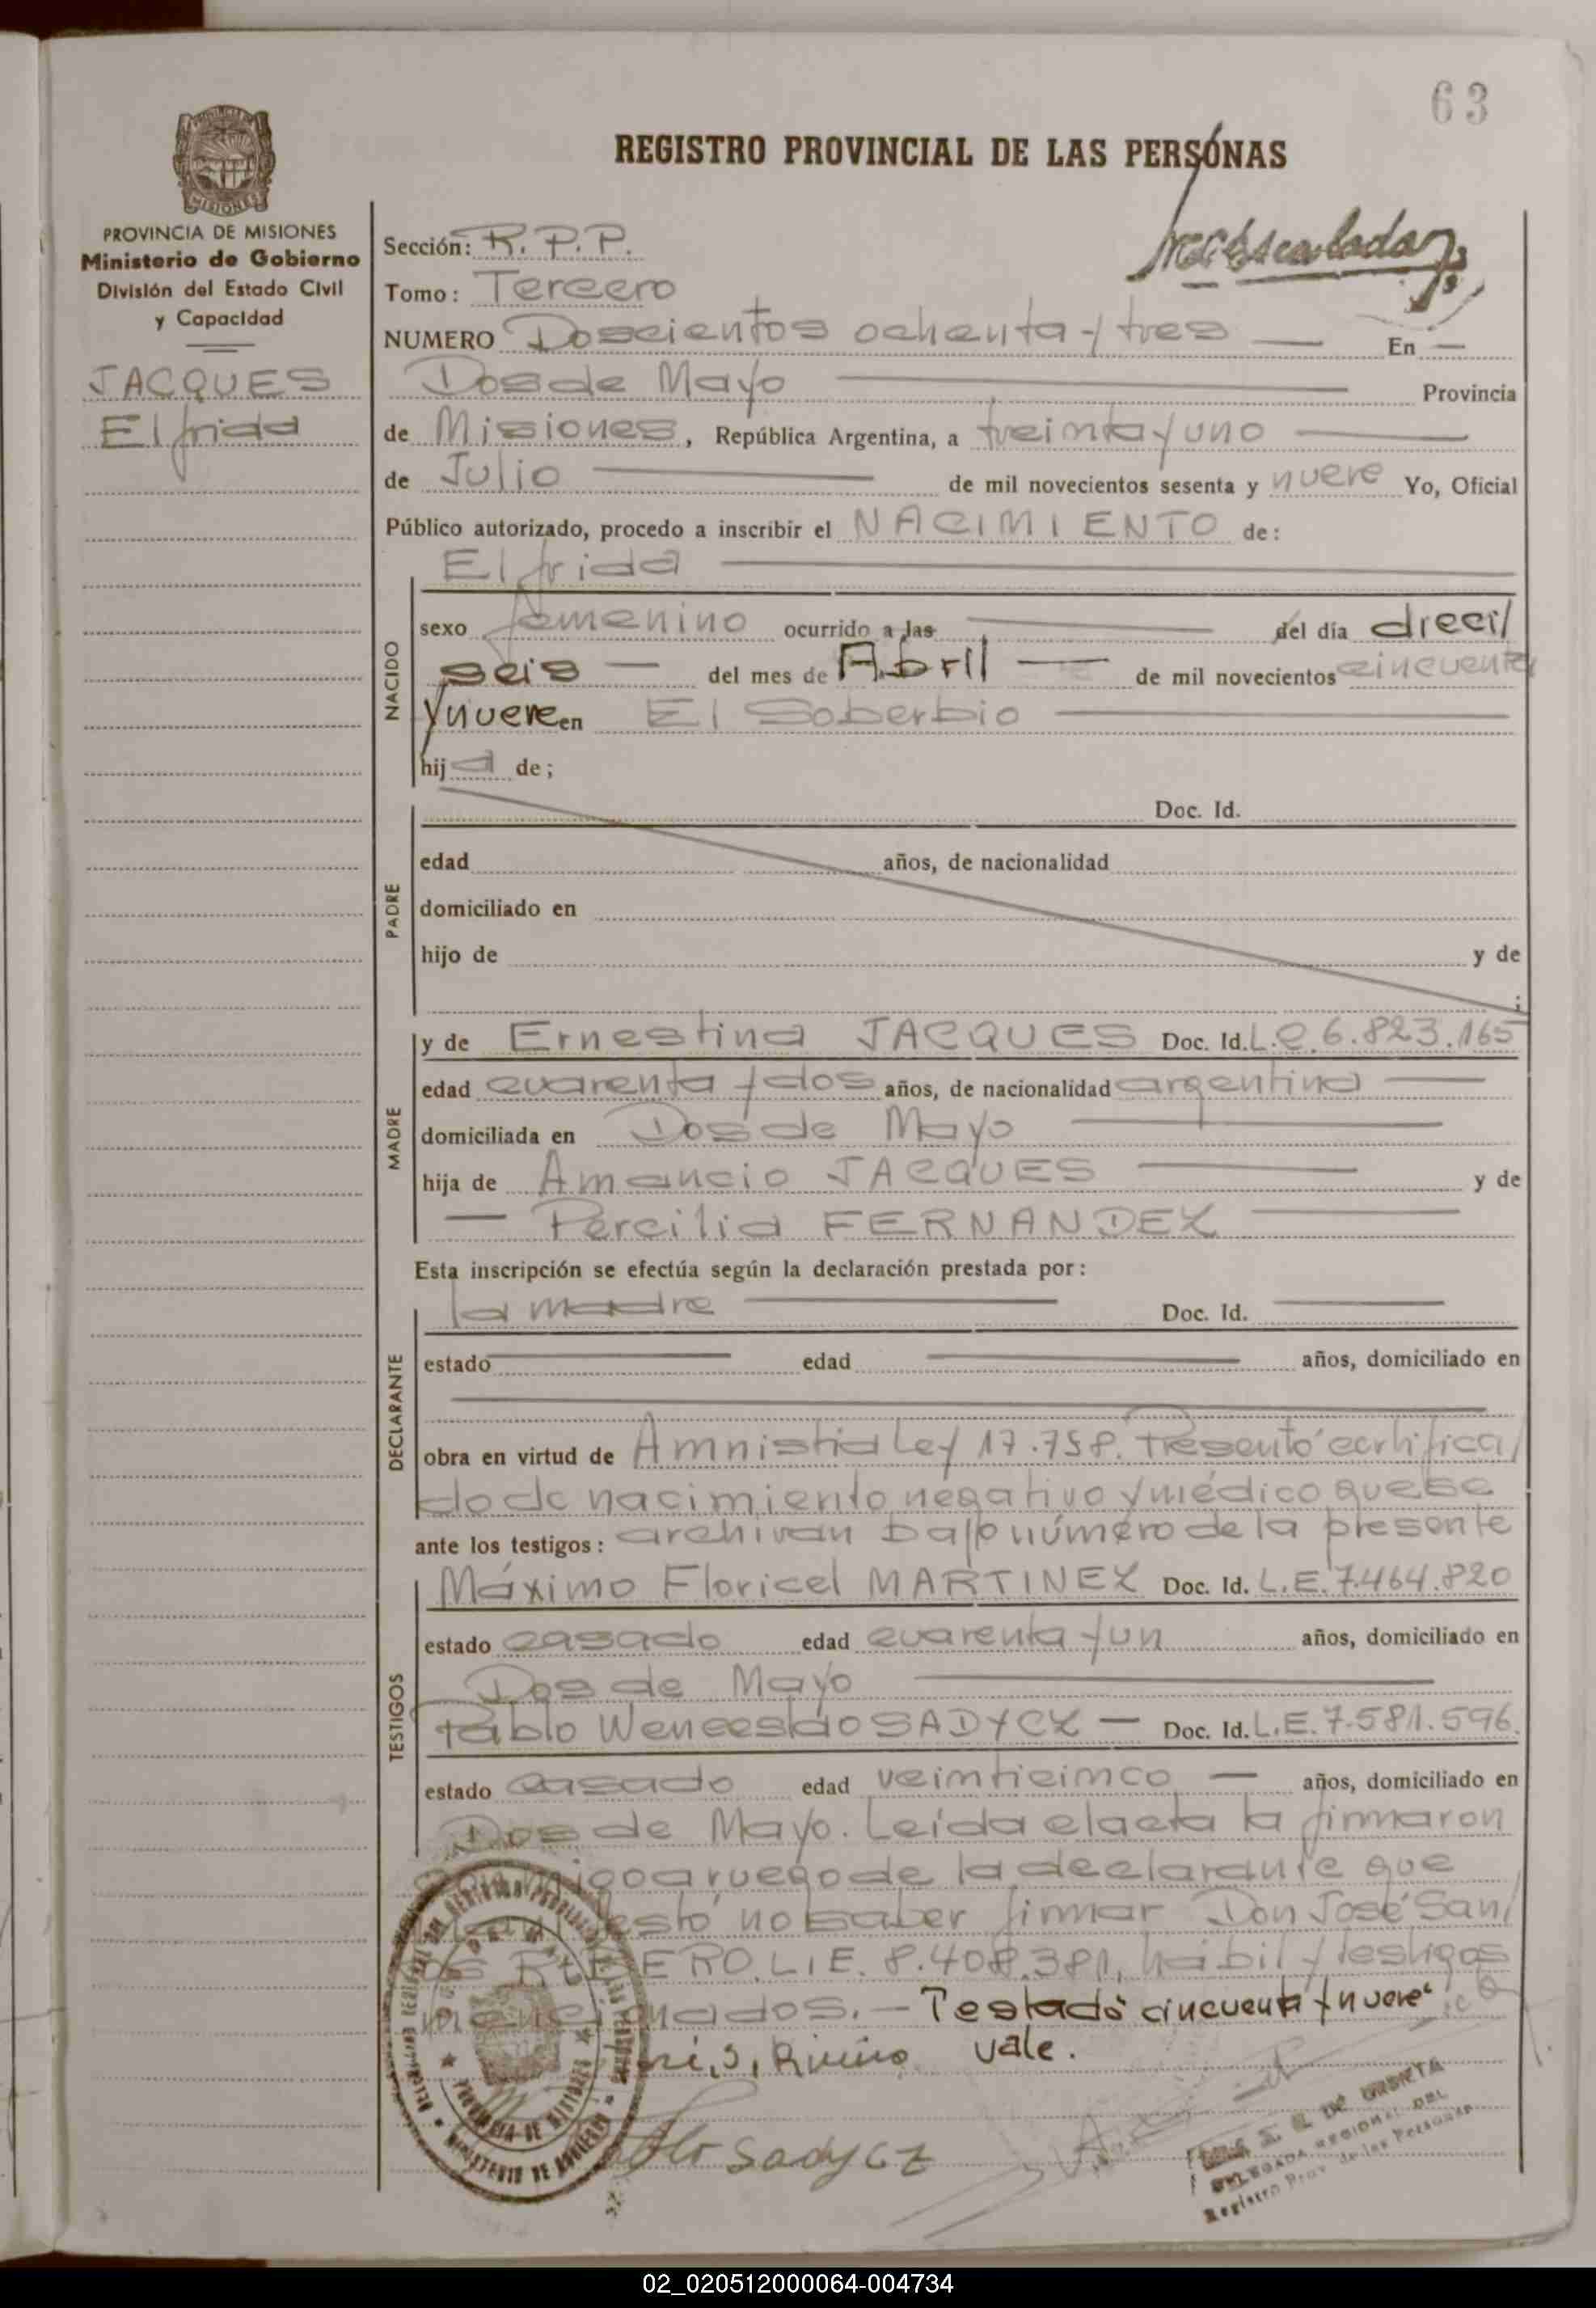 63
REGISTRO PROVINCIAL DE LAS PERSONAS
PROVINCIA DE MISIONES
Ministerio de Gobierno
División del Estado Civil
y Capacidad
JACQUES
Elfrida
Sección: R. P. P.
Tomo: Tercero
NUMERO Doscientos ochenta y tres — En —
Dos de Mayo — Provincia
de Misiones, República Argentina, a treinta y uno —
de Julio — de mil novecientos sesenta y nueve Yo, Oficial
Público autorizado, procedo a inscribir el NACIMIENTO de:
Elfrida —
NACIDO
sexo femenino ocurrido a las — del día diecil
seis — del mes de Abril — de mil novecientos cincuenta
y nueve en El Soberbio —
hij a de;
PADRE
Doc. Id.
edad años, de nacionalidad
domiciliado en
hijo de y de
;
MADRE
y de Ernestina JACQUES Doc. Id. L.C. 6.823.165
edad cuarenta y dos años, de nacionalidad argentina —
domiciliada en Dos de Mayo —
hija de Amancio JACQUES — y de
— Percilia FERNANDEZ —
Esta inscripción se efectúa según la declaración prestada por:
DECLARANTE
la madre — Doc. Id. —
estado — edad — años, domiciliado en
—
obra en virtud de Amnistia Ley 17.758. Presentó certifica/
do de nacimiento negativo y médico que se
ante los testigos: archivan bajo número de la presente
TESTIGOS
Máximo Floricel MARTINEZ Doc. Id. L.E. 7.464.820
estado casado edad cuarenta y un años, domiciliado en
Dos de Mayo —
Pablo Wenceslao SADYCZ — Doc. Id. L.E. 7.581.596.
estado casado edad veinticinco — años, domiciliado en
Dos de Mayo. Leída el acta la firmaron
a ruego de la declarante que
no saber firmar Don José San/
L.E. 8.408.381, hábil y testigos
mencionados. — Testado cincuenta y nueve
vale.
Sadycz
DELEGADA REGIONAL DEL
Registro Prov. de las Personas
PROVINCIA DE MISIONES
MINISTERIO DE GOBIERNO
02_020512000064-004734